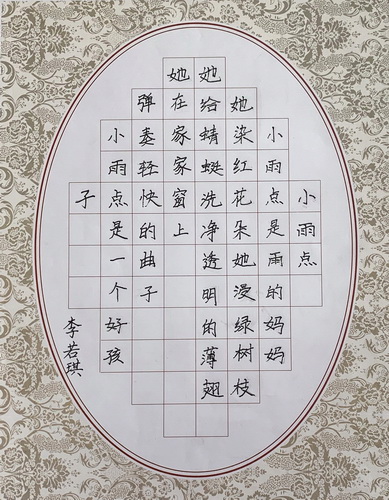 小雨点
小雨点是雨的妈妈
她染红花朵她浸绿树枝
她给蜻蜓洗净透明的薄翅
她在家家窗上
弹奏轻快的曲子
小雨点是一个好孩
子
李若琪